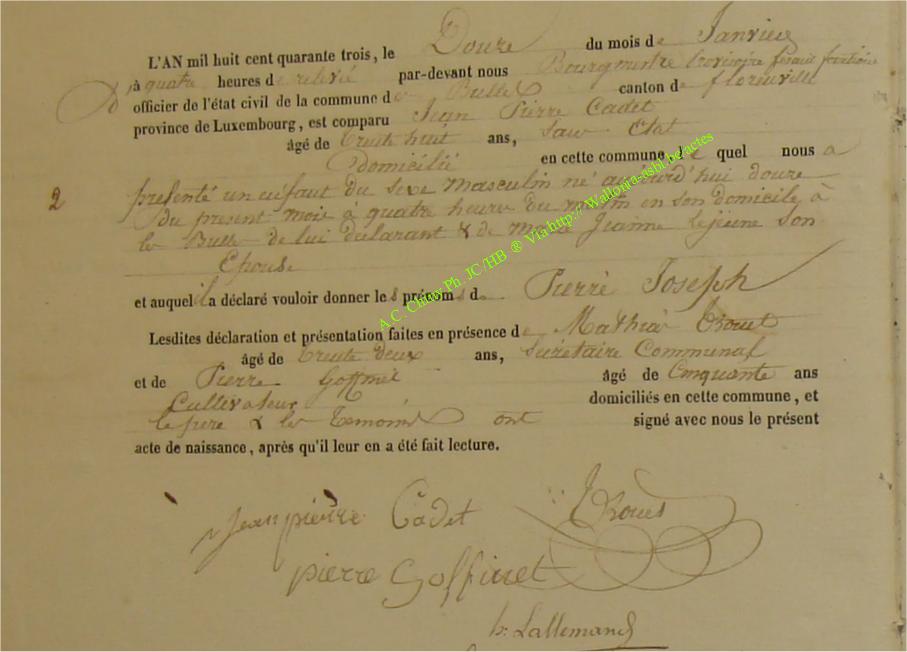 L'AN mil huit cent quarante trois, le Douze du mois de Janvier
à quatre heures de relevé par-devant nous Bourgmestre Provisoire fesant fonction d'
officier de l'état civil de la commune de Bulles canton de florenville
province de Luxembourg, est comparu Jean Pierre Cadet
âgé de trente huit ans, Sans Etat
Domicilié en cette commune, le quel nous a
2
presenté un enfant du sexe masculin né aujourd'hui douze
du present mois à quatre heures du matin en son domicile à
les Bulles de lui declarant & de Jeanne lejeune son
Epouse
et auquel il a déclaré vouloir donner les prénoms de Pierre Joseph
Lesdites déclaration et présentation faites en présence de Mathia
âgé de trente deux ans, Secrétaire Communal
et de Pierre Goffinet âgé de Cinquante ans
Cultivateur domiciliés en cette commune, et
le pere & les temoins ont signé avec nous le présent
acte de naissance, après qu'il leur en a été fait lecture.
Jean pierre Cadet
pierre Goffinet
h: Lallemand
A.C. Chiny Ph. JC/HB ® Via http:// Wallonia-asbl.be/actes